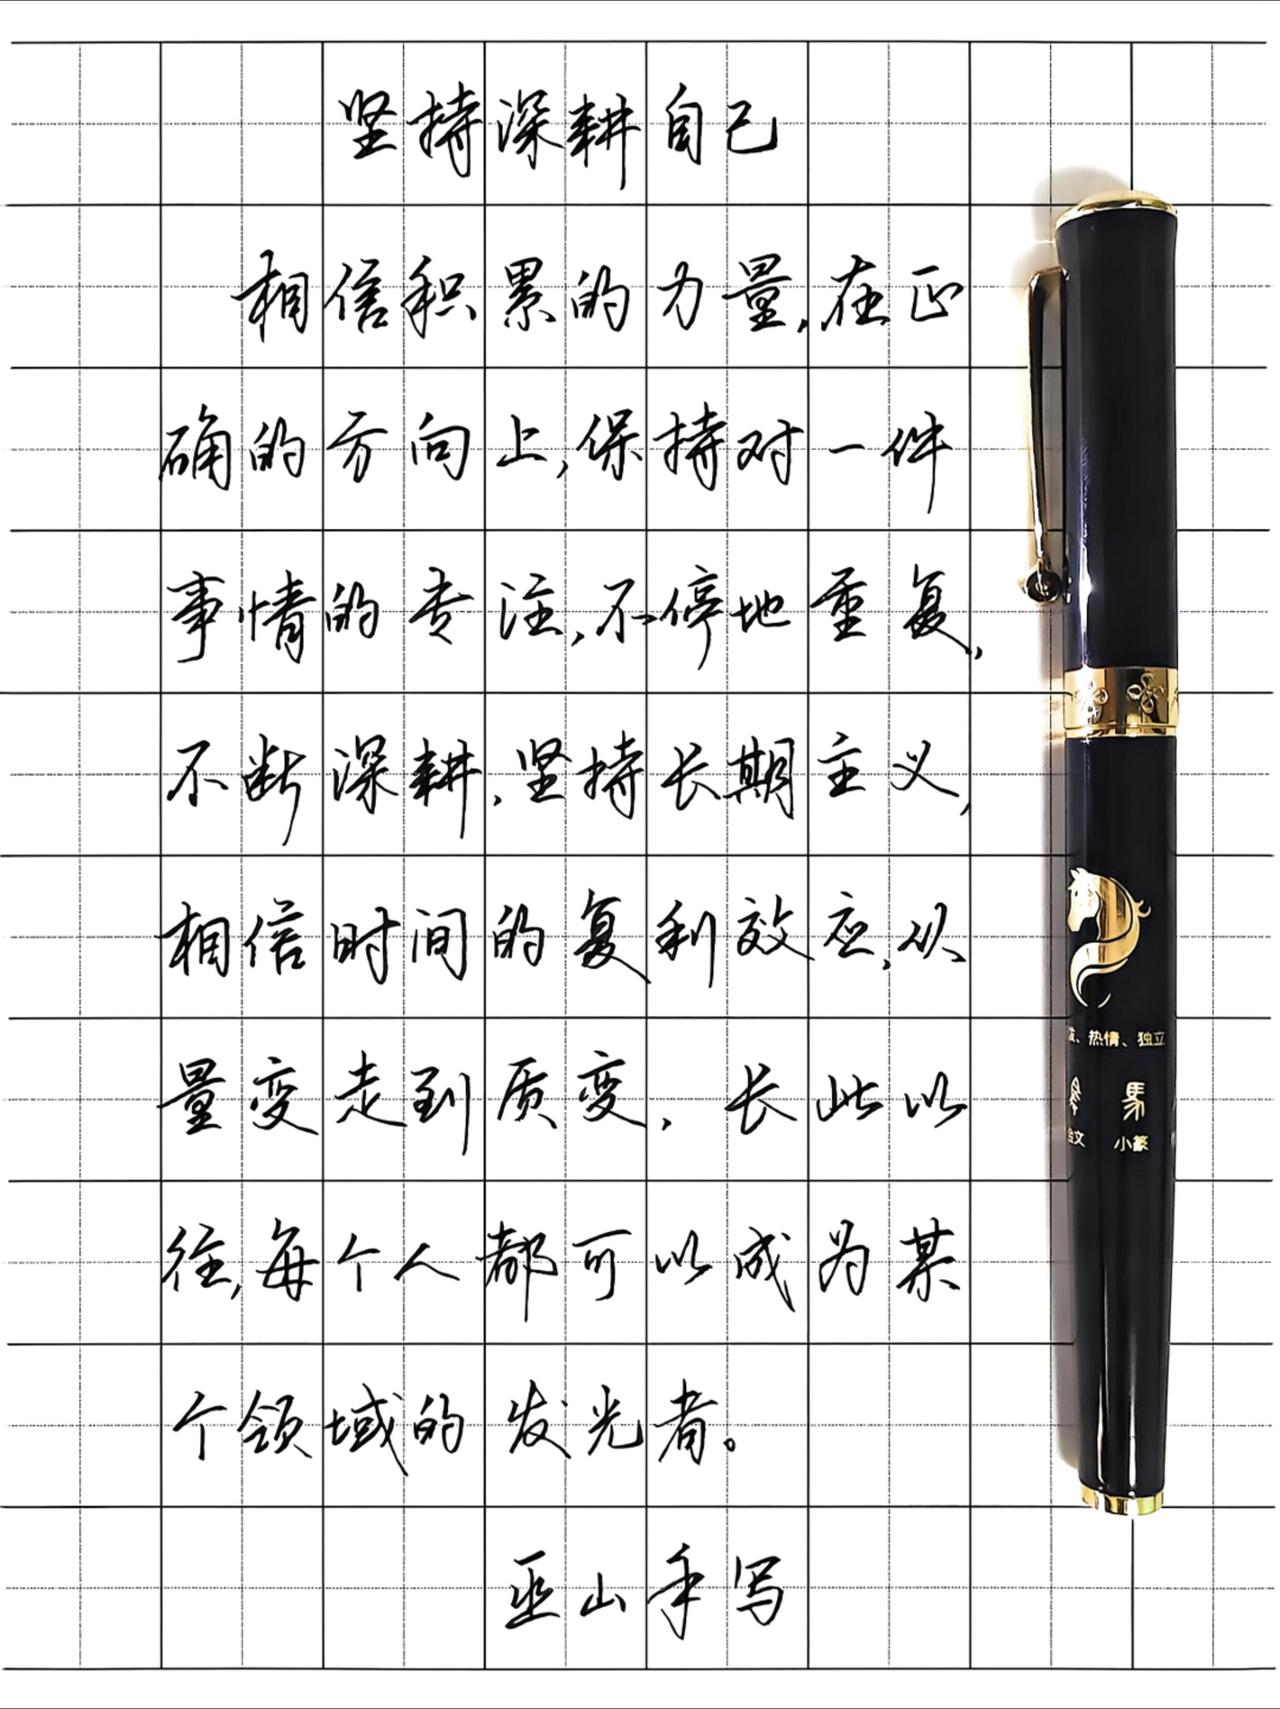 坚持深耕自己
相信积累的力量,在正
确的方向上,保持对一件
事情的专注,不停地重复,
不断深耕,坚持长期主义,
相信时间的复利效应,从
量变走到质变,长此以
往,每个人都可以成为某
个领域的发光者。
巫山手写
、热情、独立
馬
金文 小篆